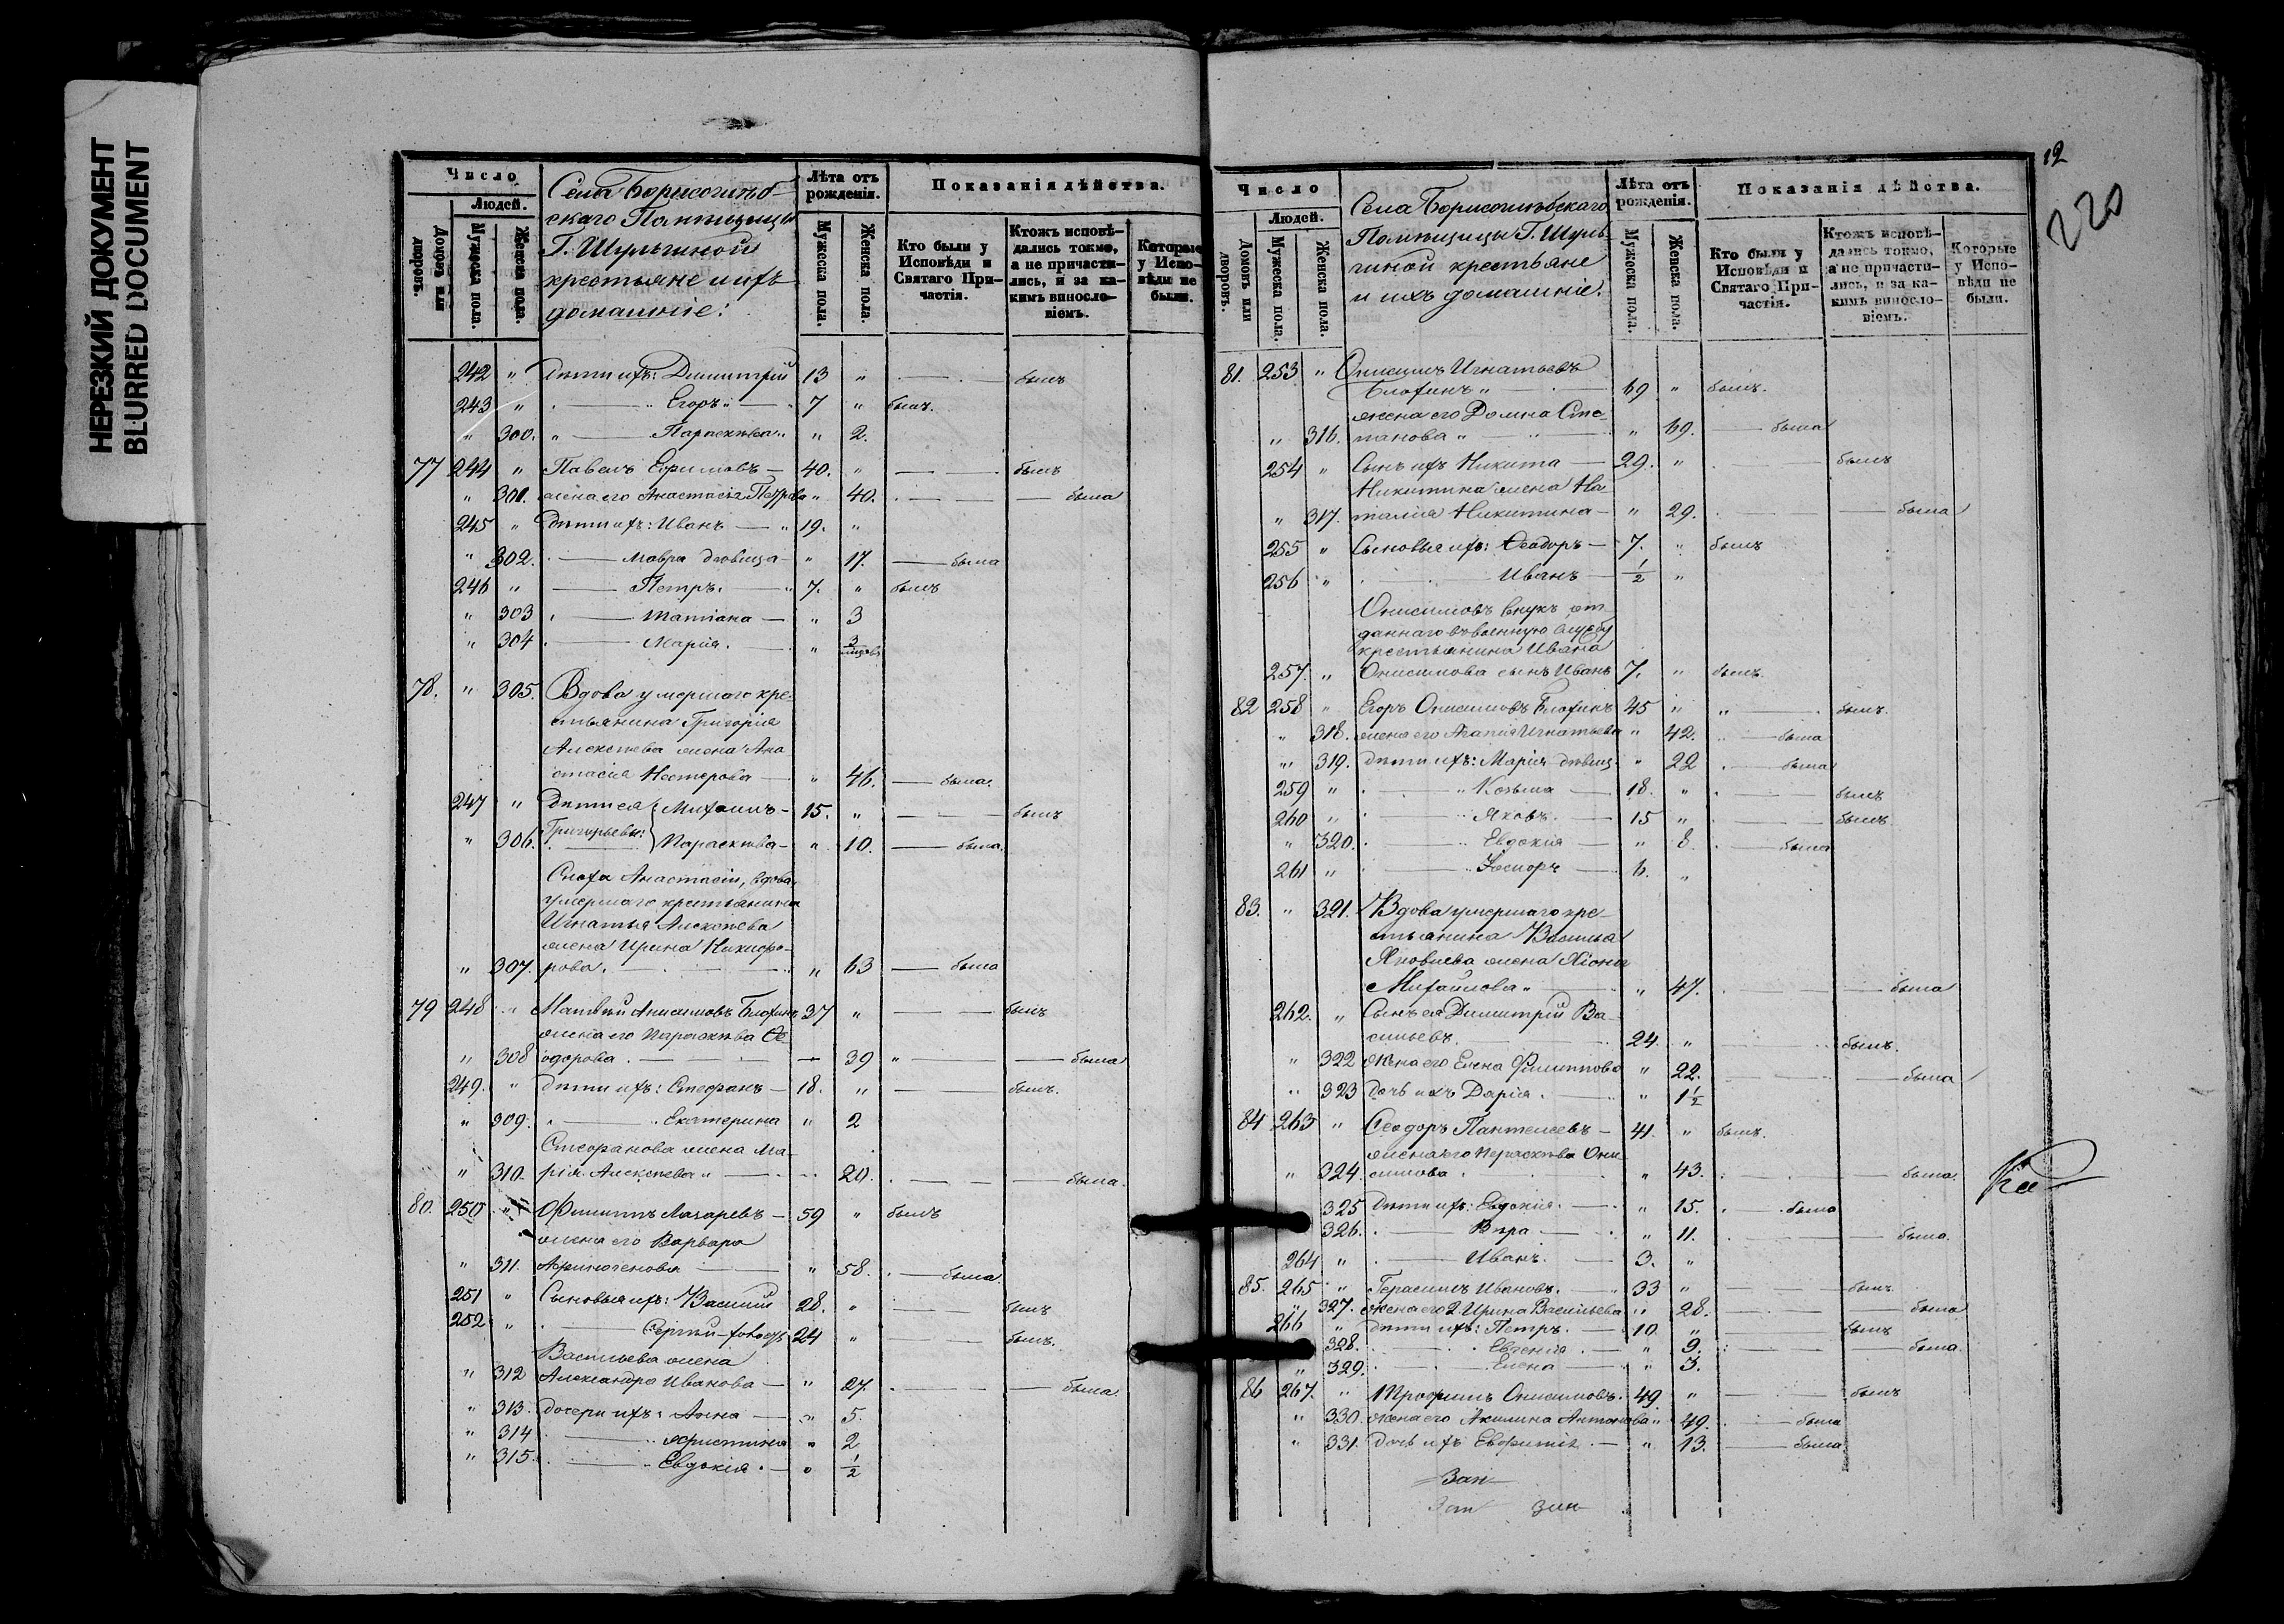 НЕРЕЗКИЙ ДОКУМЕНТ
BLURRED DOCUMENT
Число
Людей.
Домовъ или дворовъ.
Мужеска пола.
Женска пола.
Села Борисоглѣб-
скаго Помѣщицы
Г. Шульгиной
крестьяне и ихъ
домашніе:
Лѣта отъ рожденія.
Мужеска пола.
Женска пола.
Показанія дѣйства.
Кто были у Исповѣди и Святаго Причастія.
Ктожъ исповѣ-дались токмо, а не причасти-лись, и за ка-кимъ винословіемъ.
Которые у Испо-вѣди не были.
242 " Дѣти ихъ: Димитрій 13 " былъ
243 " Егоръ 7 " былъ.
" 300. " Параскѣва " 2.
77 244 " Павелъ Ефимовъ 40. " былъ
" 301. жена его Анастасія Петрова " 40. была
245 " Дѣти ихъ: Иванъ 19. "
" 302. Мавра дѣвица " 17. была
246 " Петръ. 7. " былъ
" 303 Татіана " 3
" 304 Марія. " 3
78. " 305. Вдова умершаго кре-
стьянина Григорія
Алексѣева жена Ана
стасія Нестерова " 46. была.
247 " Дѣти ея Михаилъ 15. " былъ
Григорьевы:
" 306. Параскѣва " 10. была.
Сноха Анастасіи, вдова
умершаго крестьянина
Игнатья Алексѣева
жена Ирина Никифо-
" 307. рова. " 63 была
79 248 " Матвѣй Анисимовъ Блохинъ 37 " былъ
жена его Параскѣва Ѳе
" 308 одорова. 39 " была
249. " Дѣти ихъ: Стефанъ 18. " былъ.
" 309. Екатерина " 2
Стефанова жена Ма-
" 310. рія Алексѣева " 20. была.
80. 250 " Филиппъ Лазаревъ 59 " былъ
жена его Варвара
" 311. " 58. была.
251 " Сыновья ихъ: Василій 28. " былъ
252 " Сергѣй 24 " былъ.
Васильева жена
" 312 Александра Иванова " 27. была.
" 313. Дочери ихъ: Анна " 5.
" 314 Христина " 2
" 315. Евдокія. " 1/2
12
220
Число
Людей.
Домовъ или дворовъ.
Мужеска пола.
Женска пола.
Села Борисоглѣбскаго
Помѣщицы Г. Шуль-
гиной крестьяне
и ихъ домашніе.
Лѣта отъ рожденія.
Мужеска пола.
Женска пола.
Показанія дѣйства.
Кто были у Исповѣди и Святаго При-частія.
Ктожъ исповѣ-дались токмо, а не причасти-лись, и за ка-кимъ винословіемъ.
Которые у Испо-вѣди не были.
81. 253. " Онисимъ Игнатьевъ
Блохинъ " 69 " былъ.
жена его Домна Сте-
" 316. панова " " 69. была
254 " Сынъ ихъ Никита 29. " былъ
Никитина жена На
" 317. талія Никитина " 29. была
255 " Сыновья ихъ: Ѳеодоръ 7. " былъ
256 " Иванъ 1/2 "
Онисимовъ внукъ от
даннаго въ военную службу
крестьянина Ивана
257. " Онисимова сынъ Иванъ 7. " былъ.
82 258 " Егоръ Онисимовъ Блохинъ 45 " " былъ.
" 318. жена его Агапія Игнатьева " 42. была
" 319. дѣти ихъ: Марія дѣвица " 22 была
259 " Козьма 18. " былъ
260 " Яковъ. 15 " былъ
" 320. Евдокія " 8. была
261 " 6. "
83. " 321. Вдова умершаго кре-
стьянина Василья
Яковлева жена Хіонія
Михайлова " 47. была
262. " Сынъ ея Димитрій Ва-
сильевъ 24. " былъ.
" 322 жена его Елена Филиппова " 22. была
" 323 дочь ихъ Дарія. " 1 1/2
84 263 " Ѳеодоръ Пантелеевъ 41. " былъ.
жена его Параскѣва Они
" 324. симова " 43. была.
325 дѣти ихъ: Евдокія. " 15. была
326. Вѣра " 11. была.
264 " Иванъ. 3. "
85. 265 " Герасимъ Ивановъ. 33 " былъ.
" 327. жена его 2 Ирина Васильева " 28. была
266 " дѣти ихъ: Петръ. 10. " былъ
328. Евгенія " 9. была.
" 329. Елена " 3.
86 267. " Трофимъ Онисимовъ. 49. " былъ
" 330. жена его Акилина Антонова " 49. была
" 331. дочь ихъ Евфимія. " 13. была
Зап